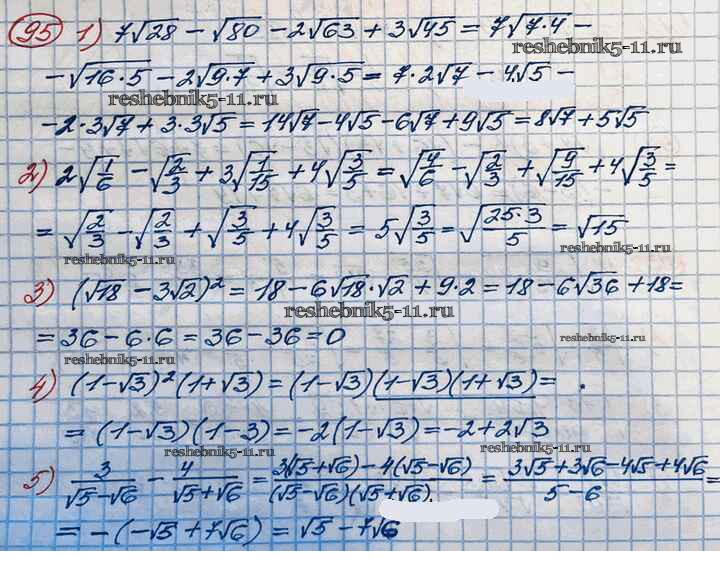 95 1) 7√28 − √80 − 2√63 + 3√45 = 7√(7·4) −
reshebnik5-11.ru
− √(16·5) − 2√(9·7) + 3√(9·5) = 7·2√7 − 4√5 −
reshebnik5-11.ru
− 2·3√7 + 3·3√5 = 14√7 − 4√5 − 6√7 + 9√5 = 8√7 + 5√5
2) 2√(1/6) − √(2/3) + 3√(1/15) + 4√(3/5) = √(4/6) − √(2/3) + √(9/15) + 4√(3/5) =
= √(2/3) − √(2/3) + √(3/5) + 4√(3/5) = 5√(3/5) = √(25·3/5) = √15
reshebnik5-11.ru reshebnik5-11.ru
3) (√18 − 3√2)² = 18 − 6√18·√2 + 9·2 = 18 − 6√36 + 18 =
reshebnik5-11.ru
= 36 − 6·6 = 36 − 36 = 0
reshebnik5-11.ru
4) (1−√3)²(1+√3) = (1−√3)(1−√3)(1+√3) =
= (1−√3)(1−3) = −2(1−√3) = −2+2√3
reshebnik5-11.ru reshebnik5-11.ru
5) 3/(√5−√6) − 4/(√5+√6) = (3(√5+√6) − 4(√5−√6))/((√5−√6)(√5+√6)) = (3√5+3√6−4√5+4√6)/(5−6) =
= −(−√5 + 7√6) = √5 − 7√6